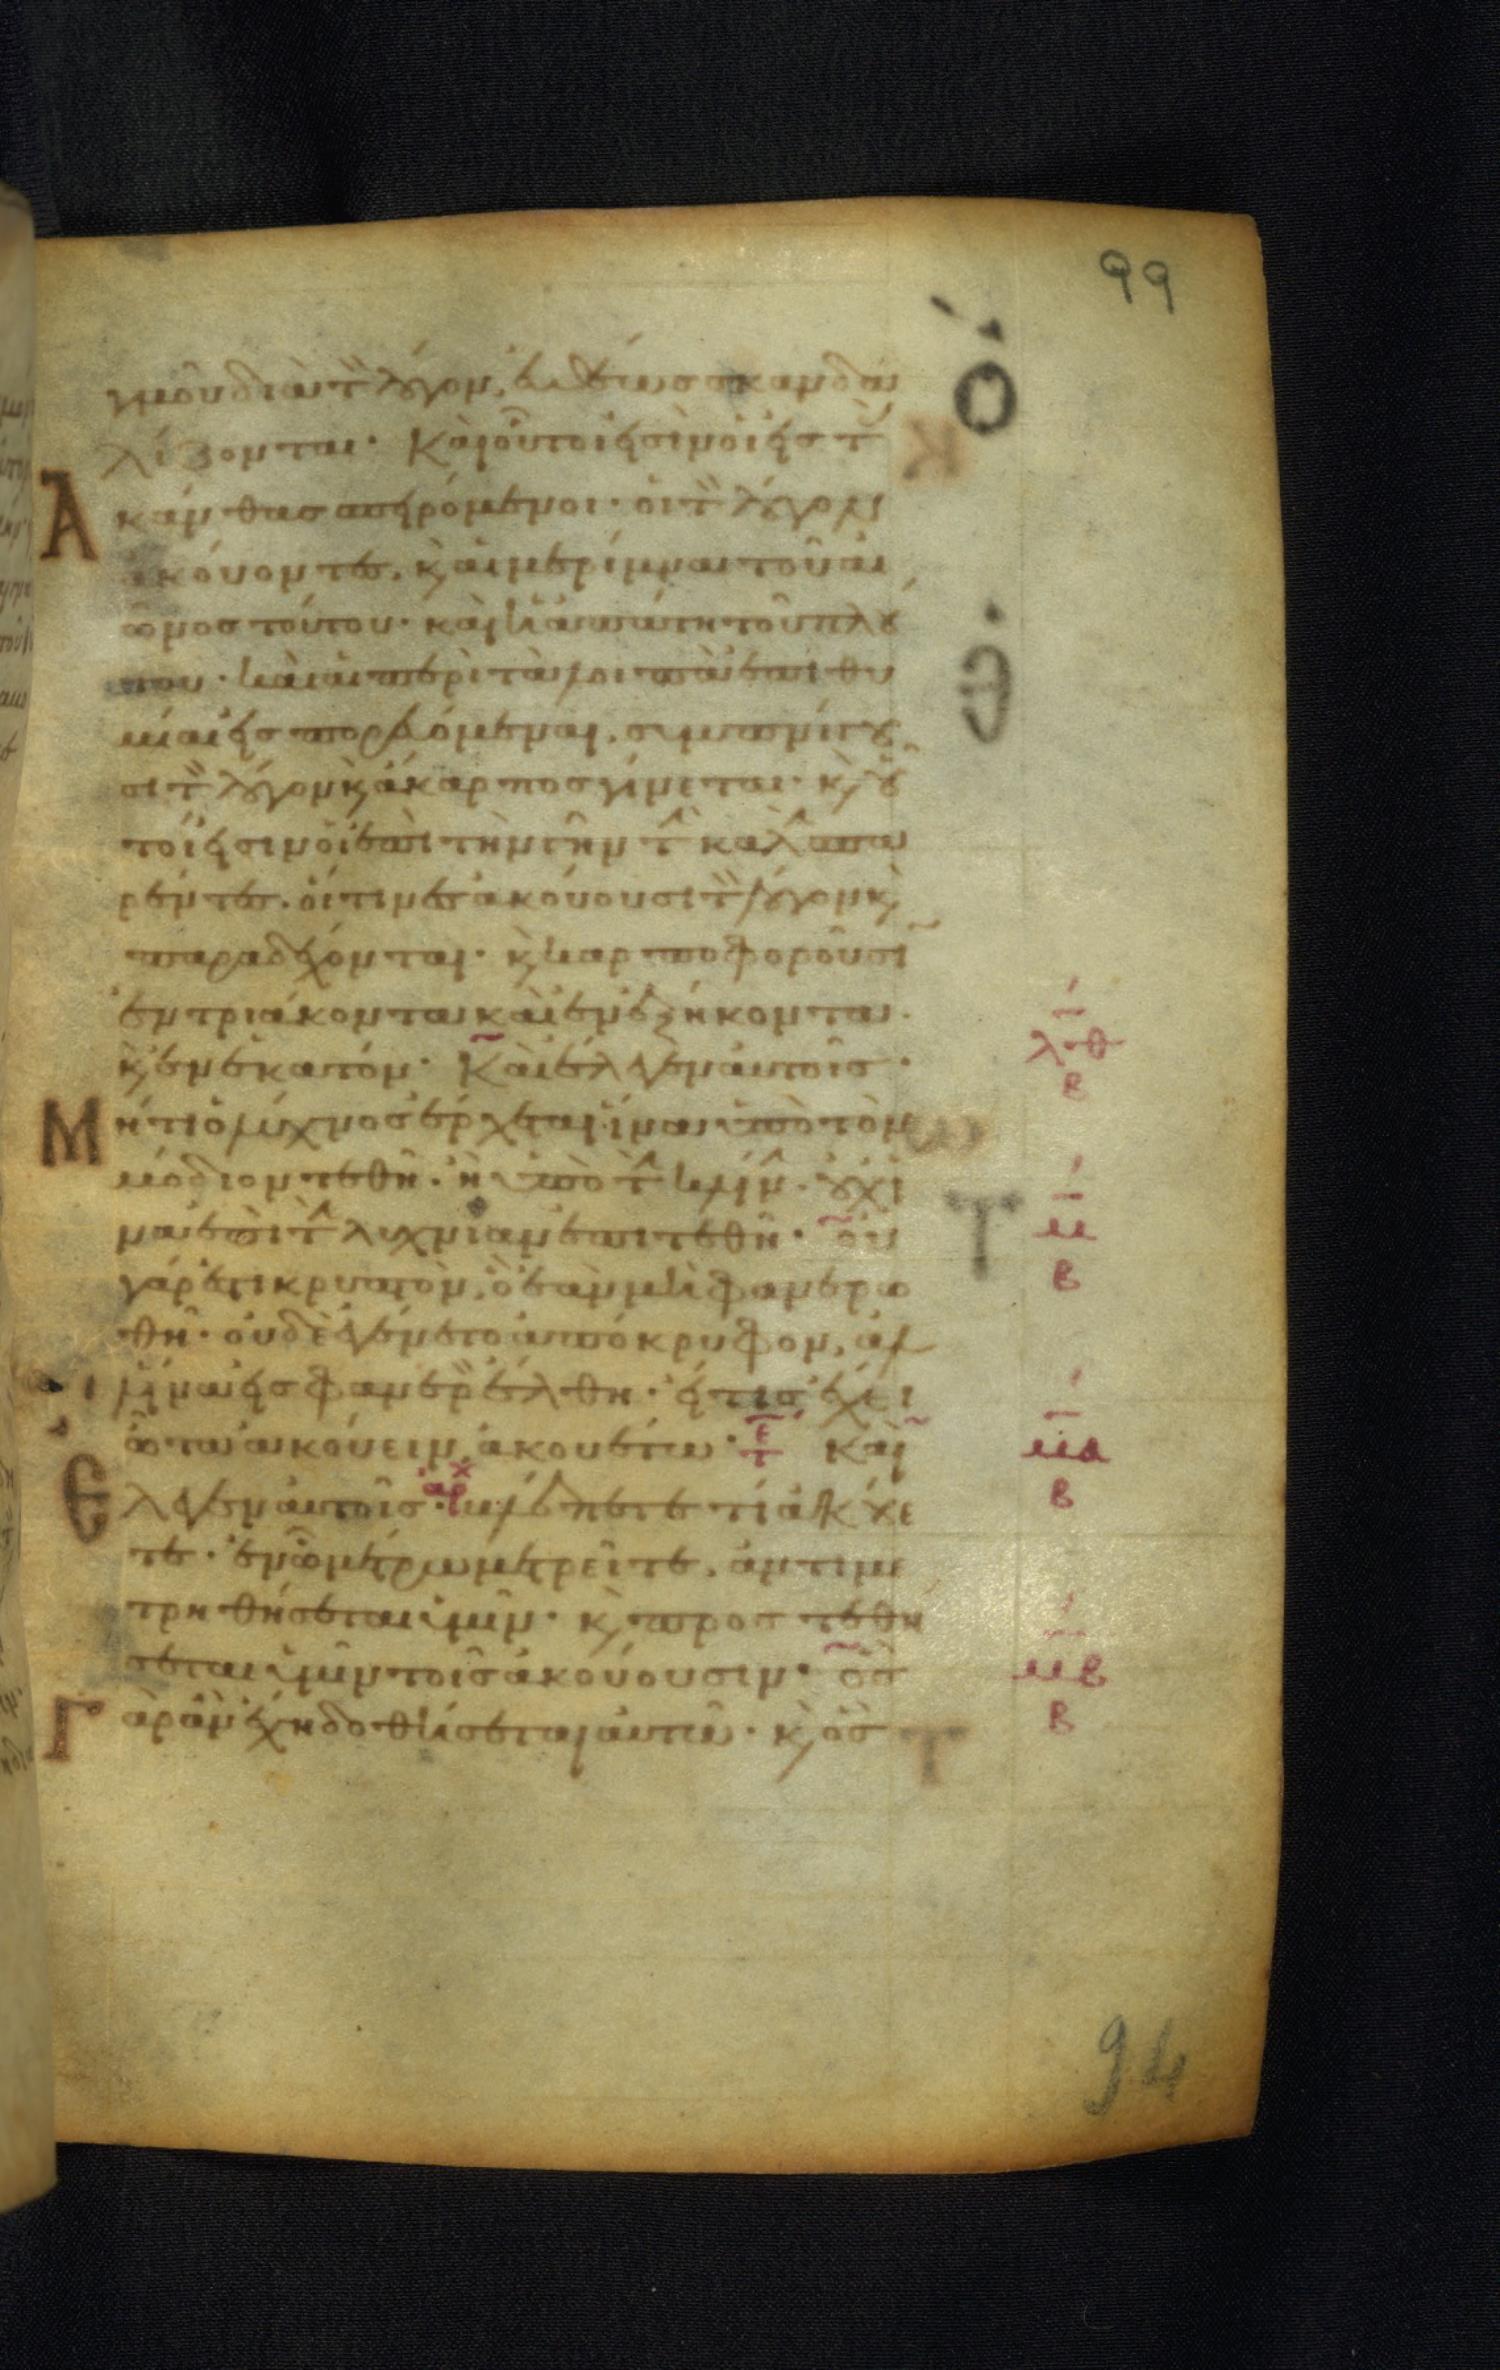 99
γμοῦ διὰ τ λόγον, εὐθέως σκανδα
λίζονται· Καὶ οὗτοι εἰσὶν οἱ εἰς τ
Ἀκάνθας σπειρόμενοι· οἱ τ λόγον
ἀκούοντες, κ αἱ μέριμναι τοῦ αἰ
ῶνος τούτου· καὶ ἡ ἀπάτη τοῦ πλού
του· καὶ αἱ περὶ τὰ λοιπὰ ἐπιθυ
μίαι εἰσπορευόμεναι, συμπνίγου
σι τ λόγον κ ἄκαρπος γίνεται· κ οὗ
τοί εἰσιν οἱ ἐπὶ τὴν γῆν τ καλὴν σπα
ρέντες· οἵτινες ἀκούουσι τ λόγον κ
παραδέχονται· κ καρποφοροῦσι
ἐν τριάκοντα καὶ ἐν ἑξήκοντα·
κ ἐν ἑκατόν· Καὶ ἔλεγεν αὐτοῖς·
Μήτι ὁ λύχνος ἔρχεται ἵνα ὑπὸ τὸν
μόδιον τεθῆ· ἢ ὑπὸ τ κλίνην· οὐχὶ
ἵνα ἐπὶ τ λυχνίαν ἐπιτεθῆ· οὐ
γάρ ἐστι κρυπτὸν, ὃ ἐὰν μὴ φανερω
θῆ· οὐδὲ ἐγένετο ἀπόκρυφον, ἀλ
λ ἵνα εἰς φανερ ἔλθη· εἴ τις ἔχει
ὦτα ἀκούειν, ἀκουέτω· τε Καὶ
Ἔλεγεν αὐτοῖς· αρχ βλέπετε τί ἀκούε
τε· ἐν ᾧ μέτρω μετρεῖτε, ἀντιμε
τρηθήσεται ὑμῖν· κ προστεθή
σεται ὑμῖν τοῖς ἀκούουσιν· ὃς
Γὰρ ἂν ἔχη δοθήσεται αὐτῶ· κ ὃς
λθ
β
μ
β
μα
β
μβ
β
94